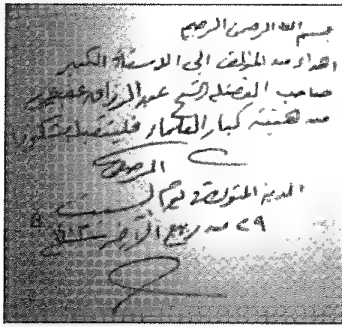 بسم الله الرحمن الرحيم
اهداء من المؤلف الى الاستاذ الكبير
صاحب الفضيلة الشيخ عبد الرزاق عفيفي
من هيئة كبار العلماء فليتفضل مشكورا
المدينة المنورة في يوم السبت
٢٩ من ربيع الآخر سنة